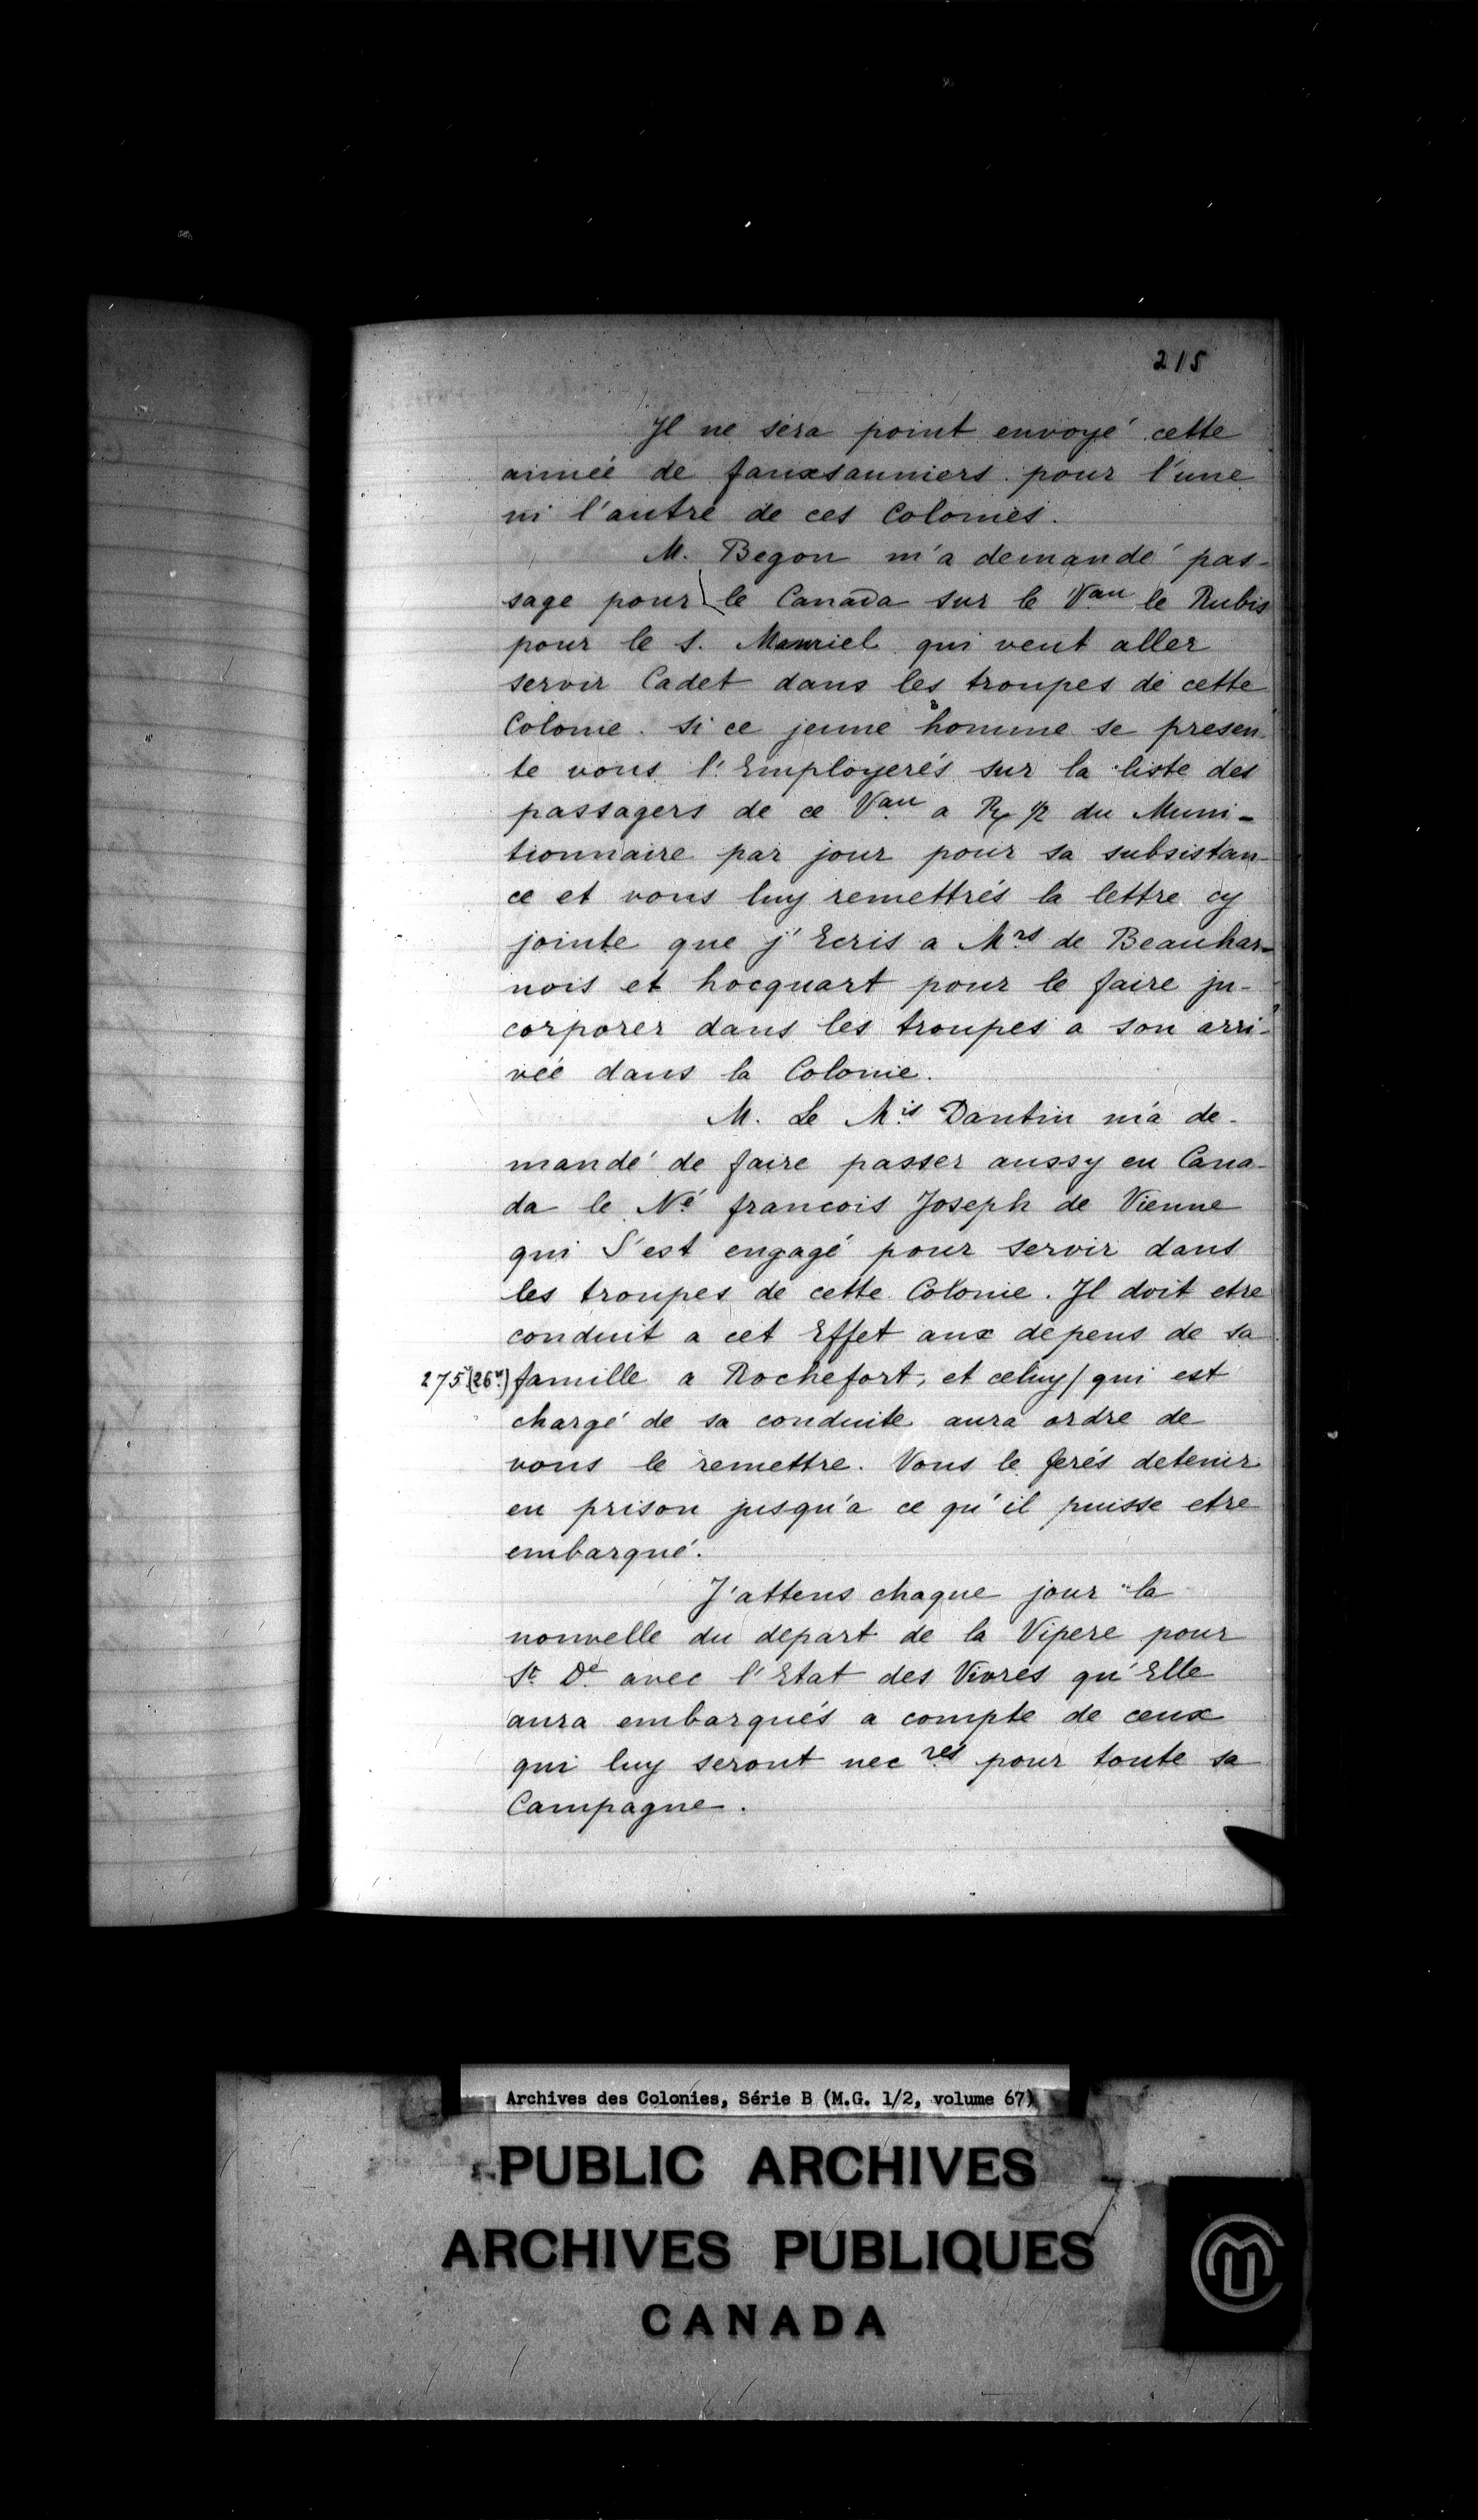 215
Il ne sera point envoyé cette
année de fauxsauniers pour l'une
ni l'autre de ces Colonies.
M. Begon m'a demandé pas-
sage pour le Canada sur le Vau le Rubis
pour le s. Mauriel qui veut aller
servir Cadet dans les troupes de cette
Colonie. Si ce jeune homme se presen-
te vous l'Employerés sur la liste des
passagers de ce Vau a Ron 1/2 du Muni-
tionnaire par jour pour sa subsistan-
ce et vous luy remettrés la lettre cy
jointe que j'Ecris a Mrs de Beauhar-
nois et hocquart pour le faire jn-
corporer dans les troupes a son arri-
vée dans la Colonie.
M. Le Mis Dantin m'a de-
mandé de faire passer aussy en Cana-
da le Né francois Joseph de Vienne
qui S'est engagé pour servir dans
les troupes de cette Colonie. Il doit etre
conduit a cet Effet aux depens de sa
275 (26v.) famille a Rochefort, et celuy/ qui est
chargé de sa conduite aura ordre de
vous le remettre. Vous le ferés detenir
en prison jusqu'a ce qu'il puisse etre
embarqué.
J'attens chaque jour la
nouvelle du depart de la Vipere pour
St. De. avec l'Etat des Vivres qu'Elle
aura embarqués a compte de ceux
qui luy seront necres pour toute sa
Campagne.
Archives des Colonies, Série B (M.G. 1/2, volume 67)
PUBLIC ARCHIVES
ARCHIVES PUBLIQUES
CANADA